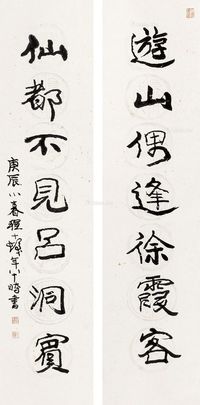 遊山偶逢徐霞客
仙都不見呂洞賓
庚辰小春程十髮年八十時書